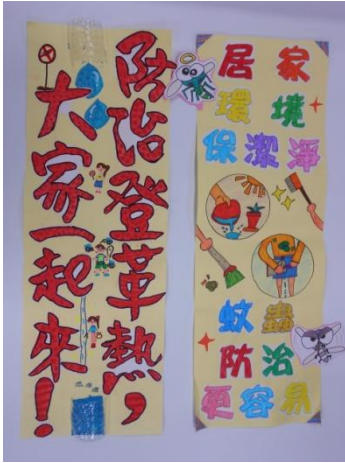 防治登革熱，
大家一起來！
居家
環境
保潔淨
蚊蟲
防治
更容易